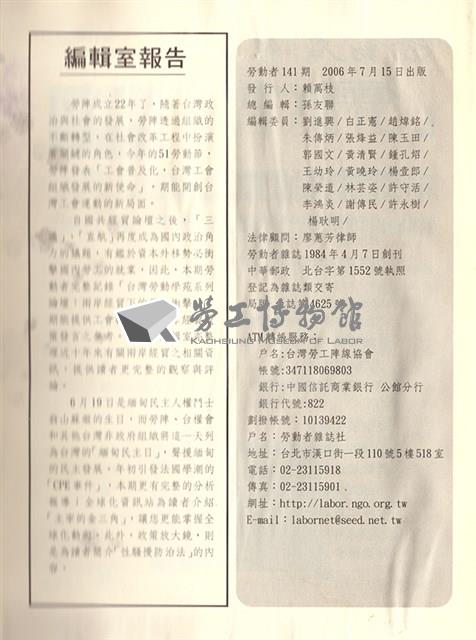 編輯室報告
勞陣成立22年了，隨著台灣政
治與社會的發展，勞陣透過組織的
不斷轉型，在社會改革工程中扮演
著關鍵的角色，今年的51勞動節，
勞陣發表「工會普及化，台灣工會
組織發展的新使命」，期能開創台
灣工會運動的新局面。
自國共經貿論壇之後，「三
」、「直航」再度成為國內政治角
力的議題，有鑑於資本外移勢必衝
擊國內勞工的就業，因此，本期勞
動者完整記錄「台灣勞動學苑系列
論壇：兩岸經
能提供工會
發言之
理近十年來有關兩岸經貿之相關資
訊，提供讀者更完整的觀察與評
論。
6月19日是緬甸民主人權鬥士
翁山蘇姬的生日，而勞陣、台權會
和其他台灣非政府組織將這一天列
為台灣的「緬甸民主日」，聲援緬甸
的民主發展，年初引發法國學潮的
「CPE事件」，本期更有完整的分析
報導；全球化資訊站為讀者介紹
「主宰的金三角」，讓您更能掌握全
球化動向。此外，政策放大鏡，則
是為讀者簡介「性騷擾防治法」的內
容。
勞動者141期 2006年7月15日出版
發行人：賴萬枝
總編輯：孫友聯
編輯委員：劉進興/白正憲/趙煒銘/
朱傳炳/張烽益/陳玉田/
郭國文/黃清賢/鍾孔炤/
王幼玲/黃曉玲/楊萱郎/
陳榮道/林芸姿/許守活/
李鴻炎/謝傳民/許永樹/
楊耿明/
法律顧問：廖蕙芳律師
勞動者雜誌1984年4月7日創刊
中華郵政 北台字第1552號執照
登記為雜誌類交寄
局版 誌第4625號
勞工博物館
KAOHSIUNG MUSEUM OF LABOR
ATM轉帳服務：
戶名:台灣勞工陣線協會
帳號:347118069803
銀行:中國信託商業銀行 公館分行
銀行代號:822
劃撥帳號：10139422
戶名：勞動者雜誌社
地址：台北市漢口街一段110號5樓518室
電話：02-23115918
傳真：02-23115901
網址：http://labor.ngo.org.tw
E-mail：labornet@seed.net.tw